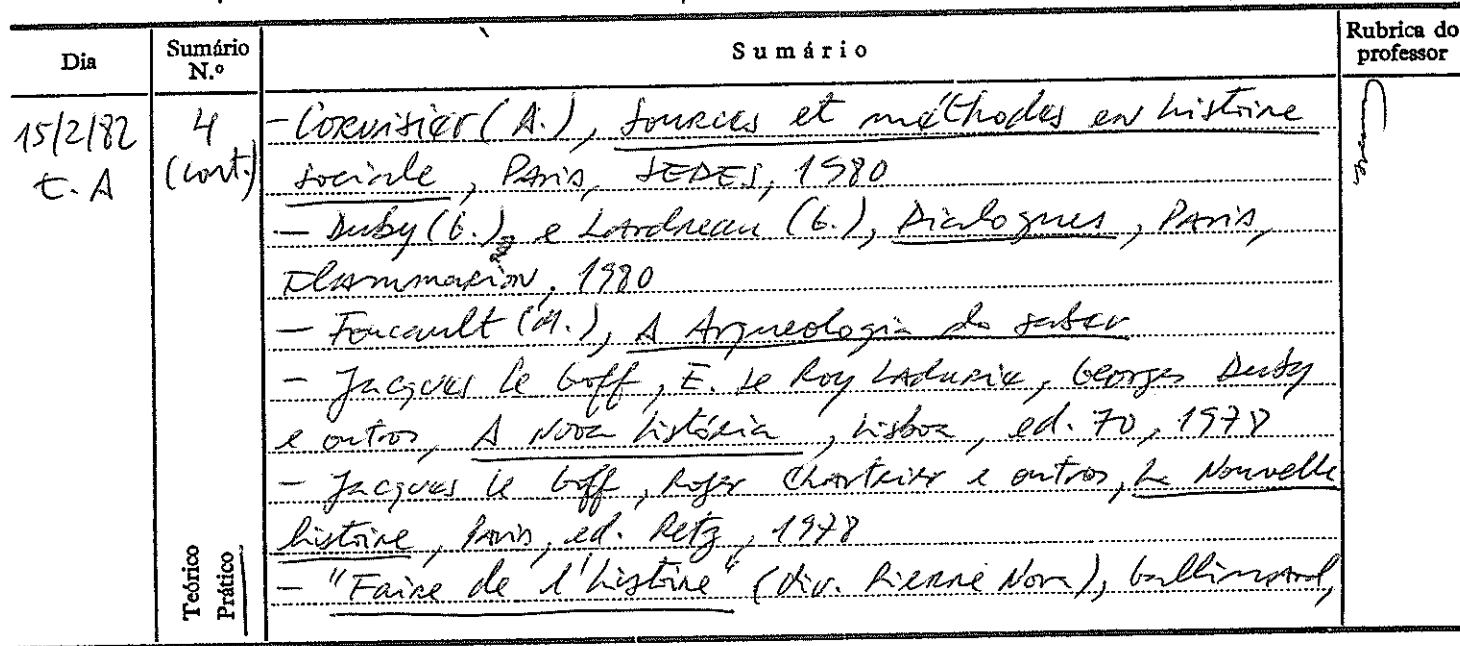 Dia
Sumário N.º
Sumário
Rubrica do professor
15/2/82
t. A
4
(cont.)
- Corvisier (A.), Sources et méthodes en histoire
sociale, Paris, SEDES, 1980
- Duby (G.) e Lardreau (G.), Dialogues, Paris,
Flammarion, 1980
- Foucault (M.), A Arqueologia do saber
- Jacques le Goff, E. Le Roy Ladurie, Georges Duby
e outros, A Nova história, Lisboa, ed. 70, 1978
- Jacques le Goff, Roger Chartier e outros, La Nouvelle
histoire, Paris, ed. Retz, 1978
- "Faire de l'histoire" (dir. Pierre Nora), Gallimard,
Teórico
Prático